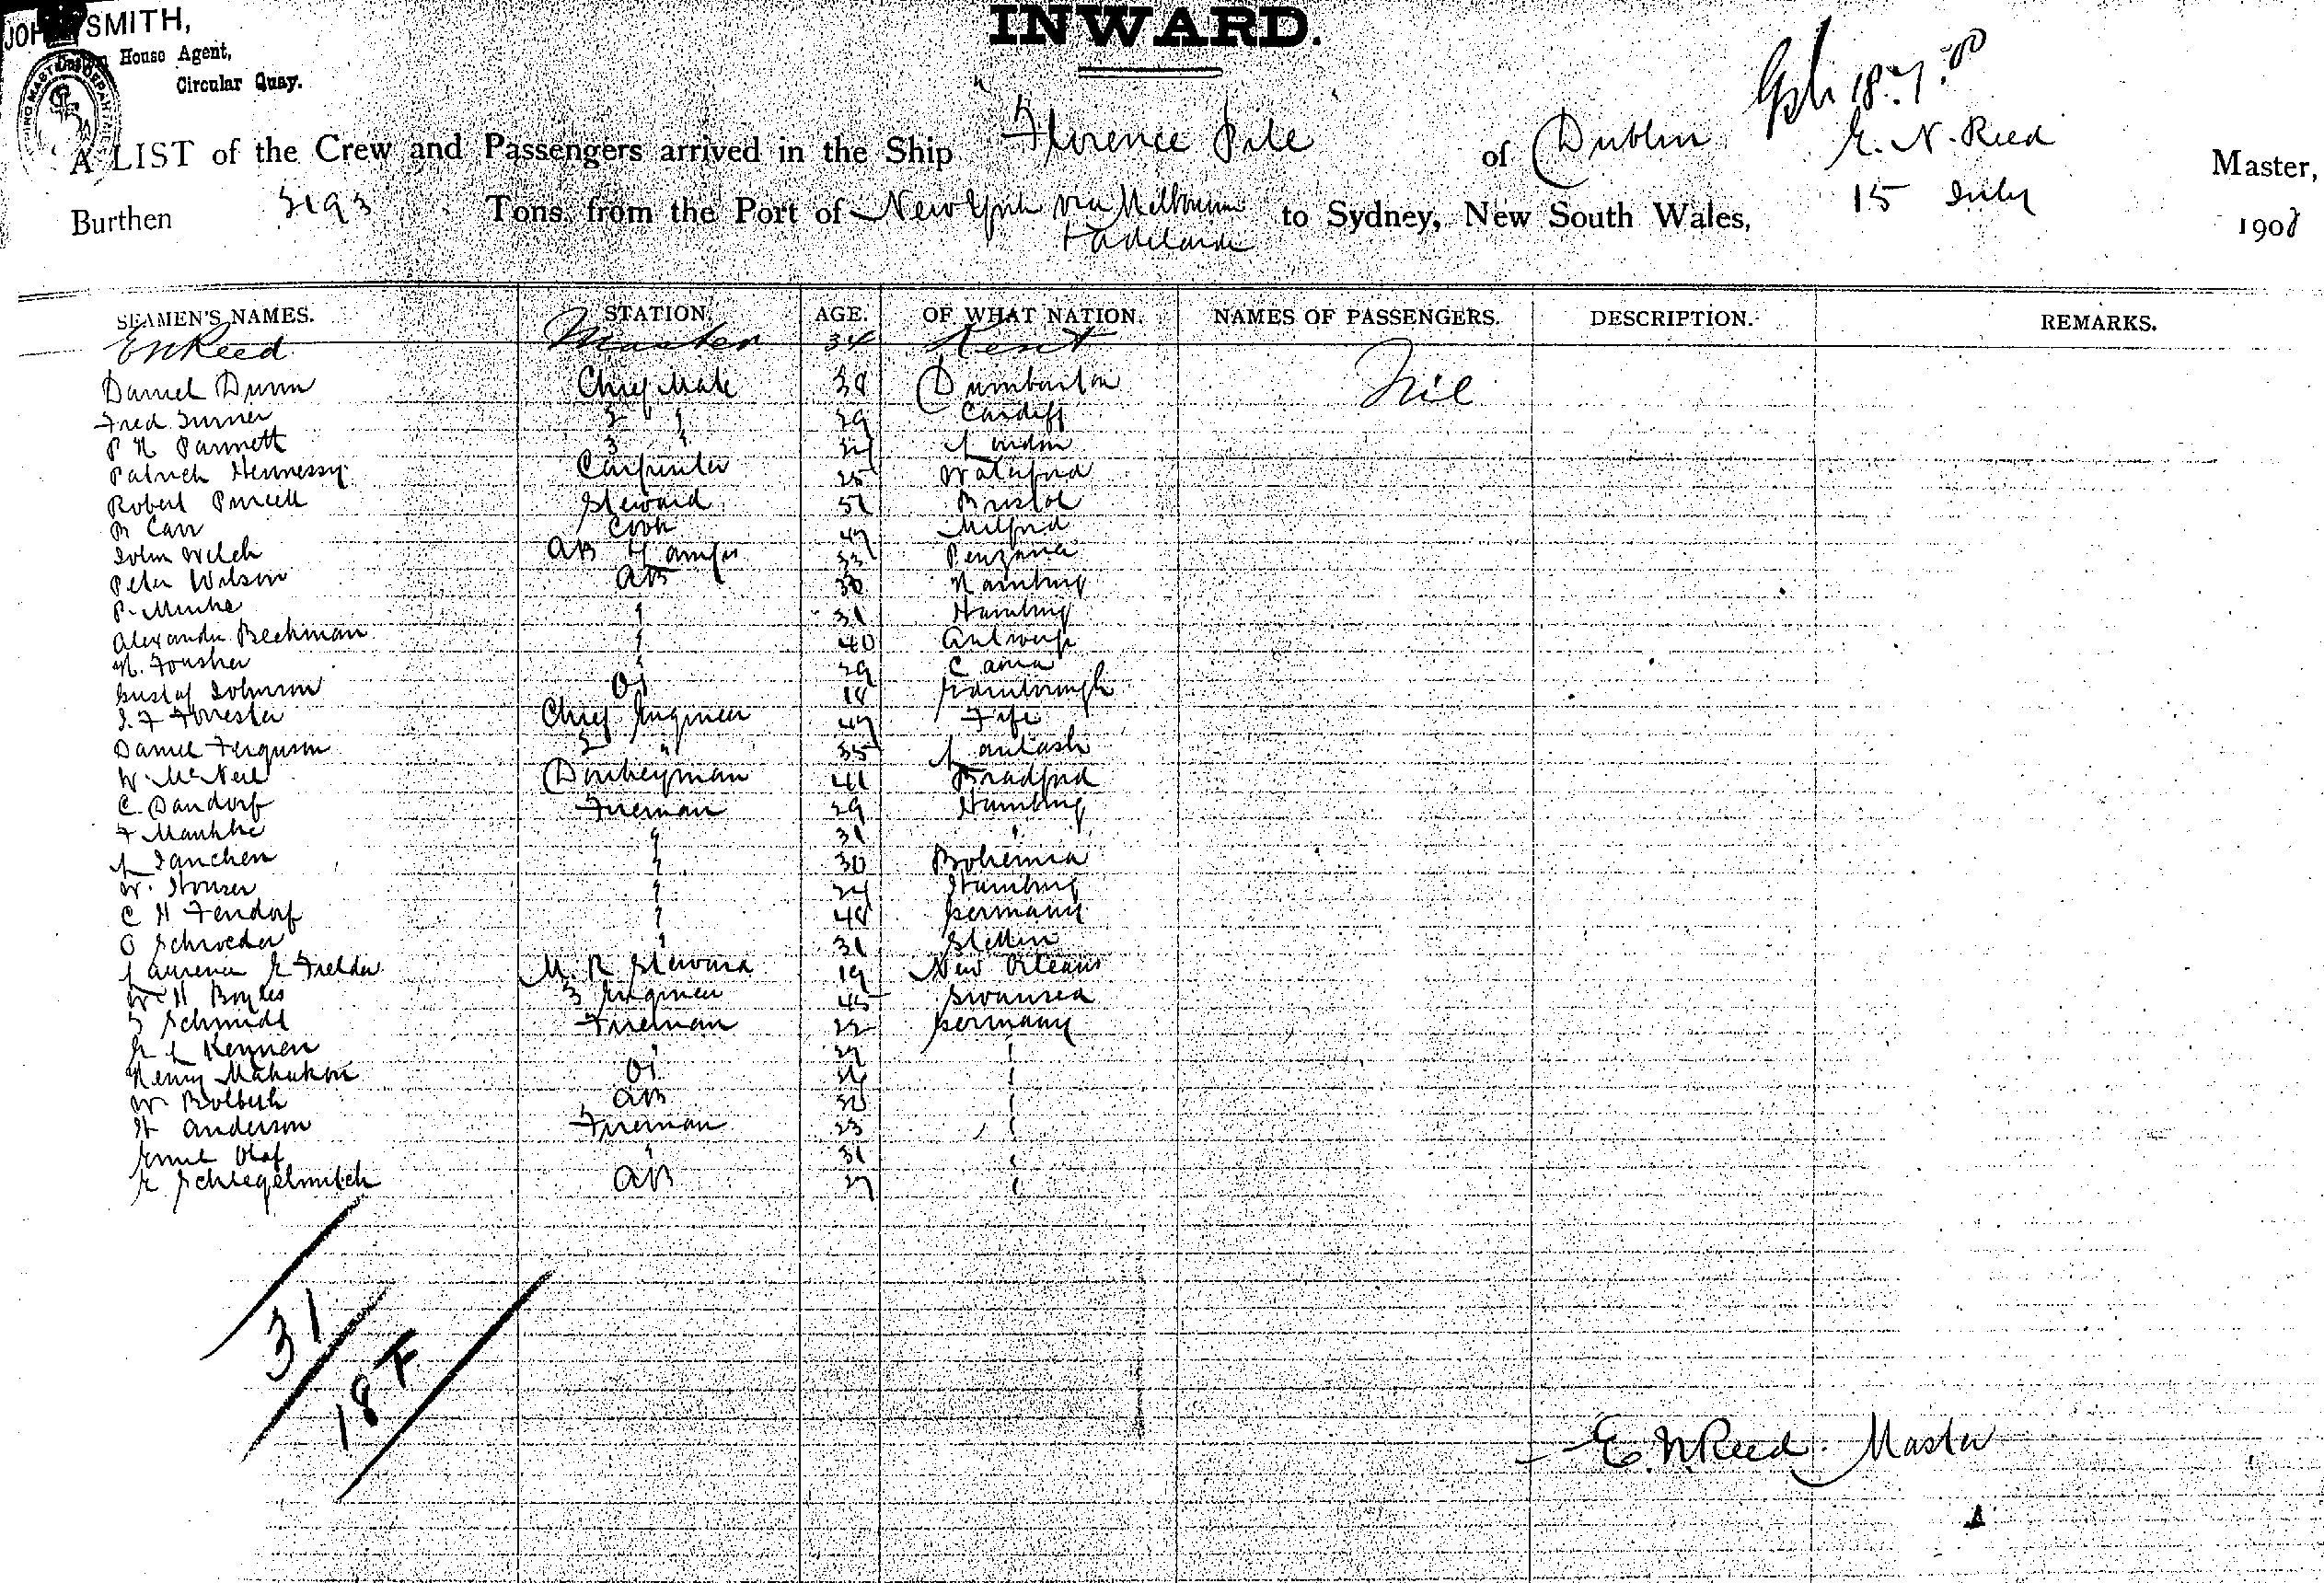 JOHN SMITH,
Custom House Agent,
Circular Quay.
INWARD.
A LIST of the Crew and Passengers arrived in the Ship "Florence Pile" of Dublin E. N. Reed Master,
Burthen 3193 Tons, from the Port of New York via Melbourne + Adelaide to Sydney, New South Wales, 15 July 190
SEAMEN'S NAMES. STATION. AGE. OF WHAT NATION. NAMES OF PASSENGERS. DESCRIPTION. REMARKS.
E N Reed Master 34 Kent
Daniel Dunn Chief Mate 38 Dumbarton Nil
Fred Turner 2 " 29 Cardiff
P H Pannett 3 " London
Patrick Hennessy Carpenter 25 Waterford
Robert Purcell Steward 51 Bristol
R Carr Cook 47 Milford
John Welch AB + Lamps 33 Penzance
Peter Wilson AB 30 Hamburg
P. Minke " 31 Hamburg
Alexander Beckman " 40 Antwerp
" 29
Gustaf Johnson OS 18
J. F Forrester Chief Engineer 47 Fife
Daniel Ferguson 2 " 35 Lamlash
W. McNeil Donkeyman 41 Bradford
C. Dandorf Fireman 29 Hamburg
F Manthe " 31 "
L Janchen " 30 Bohemia
W. Houser " 24 Hamburg
C H Fendorf " 48 Germany
O Schroeder " 31 Stettin
Laurence E Fielder M. R Steward 19 New Orleans
W H Boyles 3 Engineer 45 Swansea
Schmidt Fireman 22 Germany
" 29 "
Henry OS "
W AB "
H Anderson Fireman 23 "
Emil Olaf " 31 "
E Schlegelmilch AB 27 "
31
18 F
E. N. Reed. Master